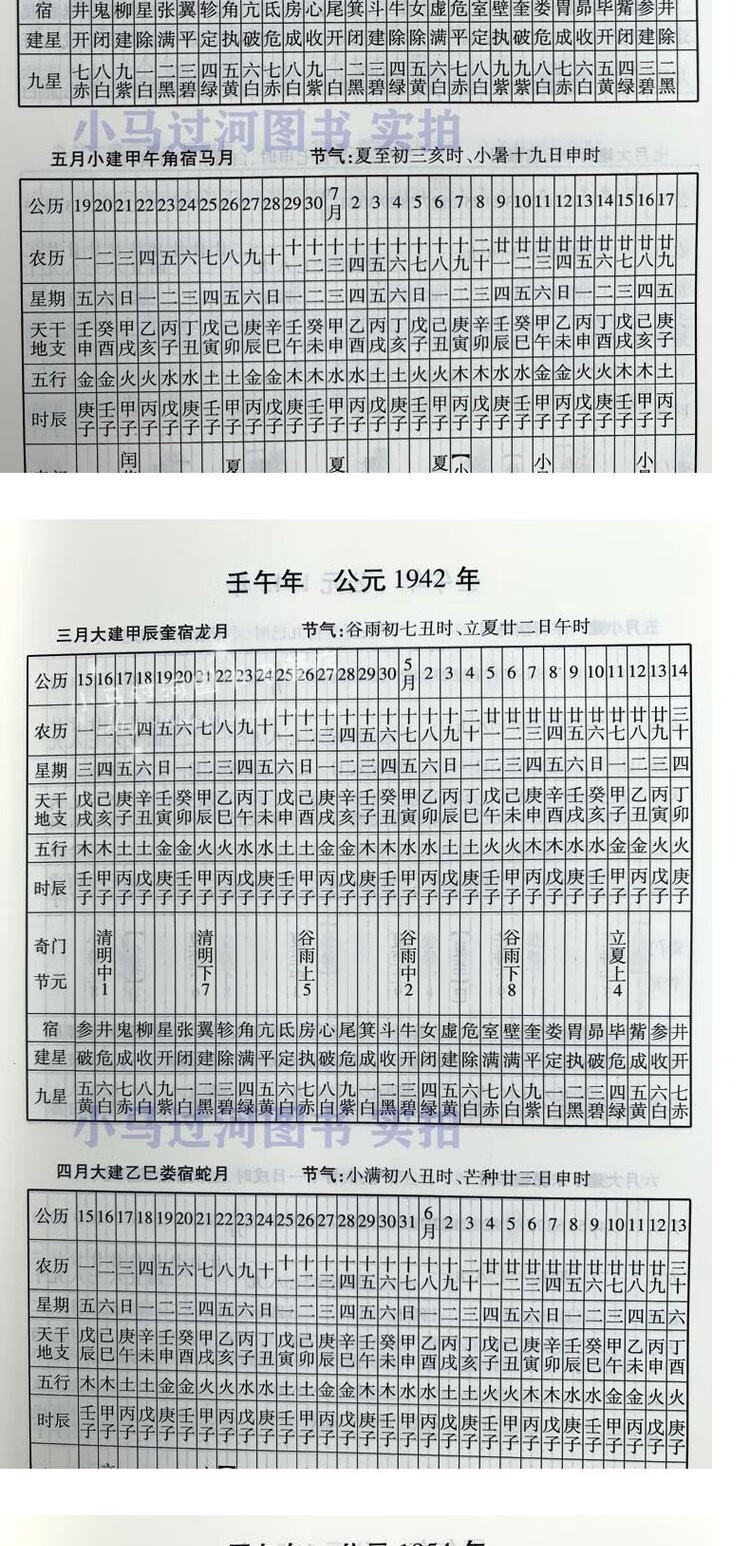 宿 井鬼柳星张翼轸角亢氐房心尾箕斗牛女虚危室壁奎娄胃昴毕觜参井
建星
九星 七赤 八白 九紫 一白 二黑 三碧 四绿 五黄 六白 七赤 八白 九紫 一白 二黑 三碧 四绿 五黄 六白 七赤 八白 九紫 九紫 八白 七赤 六白 五黄 四绿 三碧 二黑
小马过河图书 实拍
五月小建甲午角宿马月 节气:夏至初三亥时、小暑十九日申时
公历 19 20 21 22 23 24 25 26 27 28 29 30 7月 2 3 4 5 6 7 8 9 10 11 12 13 14 15 16 17
农历 一 二 三 四 五 六 七 八 九 十 十一 十二 十三 十四 十五 十六 十七 十八 十九 二十 廿一 廿二 廿三 廿四 廿五 廿六 廿七 廿八 廿九
星期 五六日一二三四五六日一二三四五六日一二三四五六日一二三四五
天干地支 壬申 癸酉 甲戌 乙亥 丙子 丁丑 戊寅 己卯 庚辰 辛巳 壬午 癸未 甲申 乙酉 丙戌 丁亥 戊子 己丑 庚寅 辛卯 壬辰 癸巳 甲午 乙未 丙申 丁酉 戊戌 己亥 庚子
五行 金金火火水水土土金金木木水水土土火火木木水水金金火火木木土
时辰 庚子 壬子 甲子 丙子 戊子 庚子 壬子 甲子 丙子 戊子 庚子 壬子 甲子 丙子 戊子 庚子 壬子 甲子 丙子 戊子 庚子 壬子 甲子 丙子 戊子 庚子 壬子 甲子 丙子
闰 夏 夏 夏
壬午年 公元1942年
三月大建甲辰奎宿龙月 节气:谷雨初七丑时、立夏廿二日午时
公历 15 16 17 18 19 20 21 22 23 24 25 26 27 28 29 30 5月 2 3 4 5 6 7 8 9 10 11 12 13 14
农历 一 二 三 四 五 六 七 八 九 十 十一 十二 十三 十四 十五 十六 十七 十八 十九 二十 廿一 廿二 廿三 廿四 廿五 廿六 廿七 廿八 廿九 三十
星期 三四五六日一二三四五六日一二三四五六日一二三四五六日一二三四
天干地支 戊戌 己亥 庚子 辛丑 壬寅 癸卯 甲辰 乙巳 丙午 丁未 戊申 己酉 庚戌 辛亥 壬子 癸丑 甲寅 乙卯 丙辰 丁巳 戊午 己未 庚申 辛酉 壬戌 癸亥 甲子 乙丑 丙寅 丁卯
五行 木木土土金金火火水水土土金金木木水水土土火火木木水水金金火火
时辰 壬子 甲子 丙子 戊子 庚子 壬子 甲子 丙子 戊子 庚子 壬子 甲子 丙子 戊子 庚子 壬子 甲子 丙子 戊子 庚子 壬子 甲子 丙子 戊子 庚子 壬子 甲子 丙子 戊子 庚子
奇门节元 清明中1 清明下7 谷雨上5 谷雨中2 谷雨下8 立夏上4
宿 参井鬼柳星张翼轸角亢氐房心尾箕斗牛女虚危室壁奎娄胃昴毕觜参井
建星 破危成收开闭建除满平定执破危成收开闭建除满满平定执破危成收开
九星 五黄 六白 七赤 八白 九紫 一白 二黑 三碧 四绿 五黄 六白 七赤 八白 九紫 一白 二黑 三碧 四绿 五黄 六白 七赤 八白 九紫 一白 二黑 三碧 四绿 五黄 六白 七赤
小马过河图书 实拍
四月大建乙巳娄宿蛇月 节气:小满初八丑时、芒种廿三日申时
公历 15 16 17 18 19 20 21 22 23 24 25 26 27 28 29 30 31 6月 2 3 4 5 6 7 8 9 10 11 12 13
农历 一 二 三 四 五 六 七 八 九 十 十一 十二 十三 十四 十五 十六 十七 十八 十九 二十 廿一 廿二 廿三 廿四 廿五 廿六 廿七 廿八 廿九 三十
星期 五六日一二三四五六日一二三四五六日一二三四五六日一二三四五六
天干地支 戊辰 己巳 庚午 辛未 壬申 癸酉 甲戌 乙亥 丙子 丁丑 戊寅 己卯 庚辰 辛巳 壬午 癸未 甲申 乙酉 丙戌 丁亥 戊子 己丑 庚寅 辛卯 壬辰 癸巳 甲午 乙未 丙申 丁酉
五行 木木土土金金火火水水土土金金木木水水土土火火木木水水金金火火
时辰 壬子 甲子 丙子 戊子 庚子 壬子 甲子 丙子 戊子 庚子 壬子 甲子 丙子 戊子 庚子 壬子 甲子 丙子 戊子 庚子 壬子 甲子 丙子 戊子 庚子 壬子 甲子 丙子 戊子 庚子